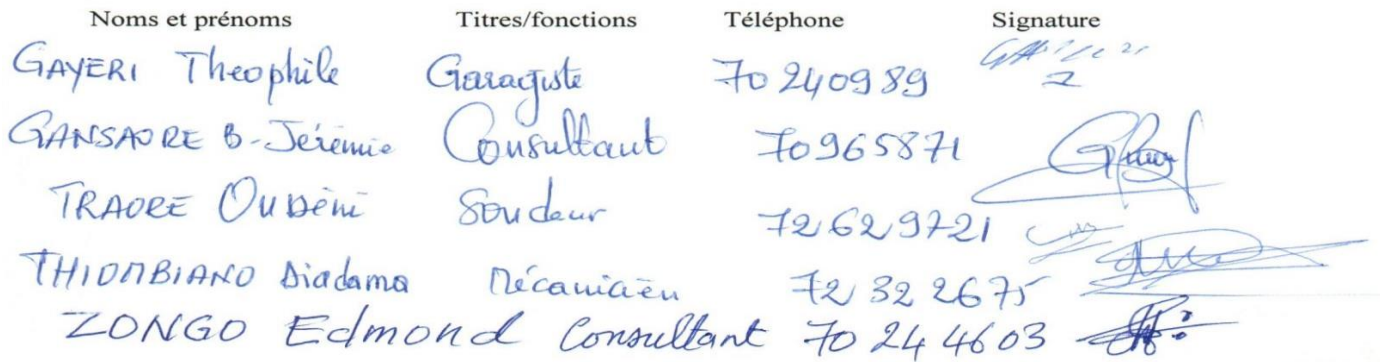 Noms et prénoms Titres/fonctions Téléphone Signature
GAYERI Theophile Garagiste 70 240989
GANSAORE B-Jérémie Consultant 70965871
TRAORE OUDéni Soudeur 72629721
THIOMBIANO Diadama Mécanicien 72 32 2675
ZONGO Edmond Consultant 70 24 46 03